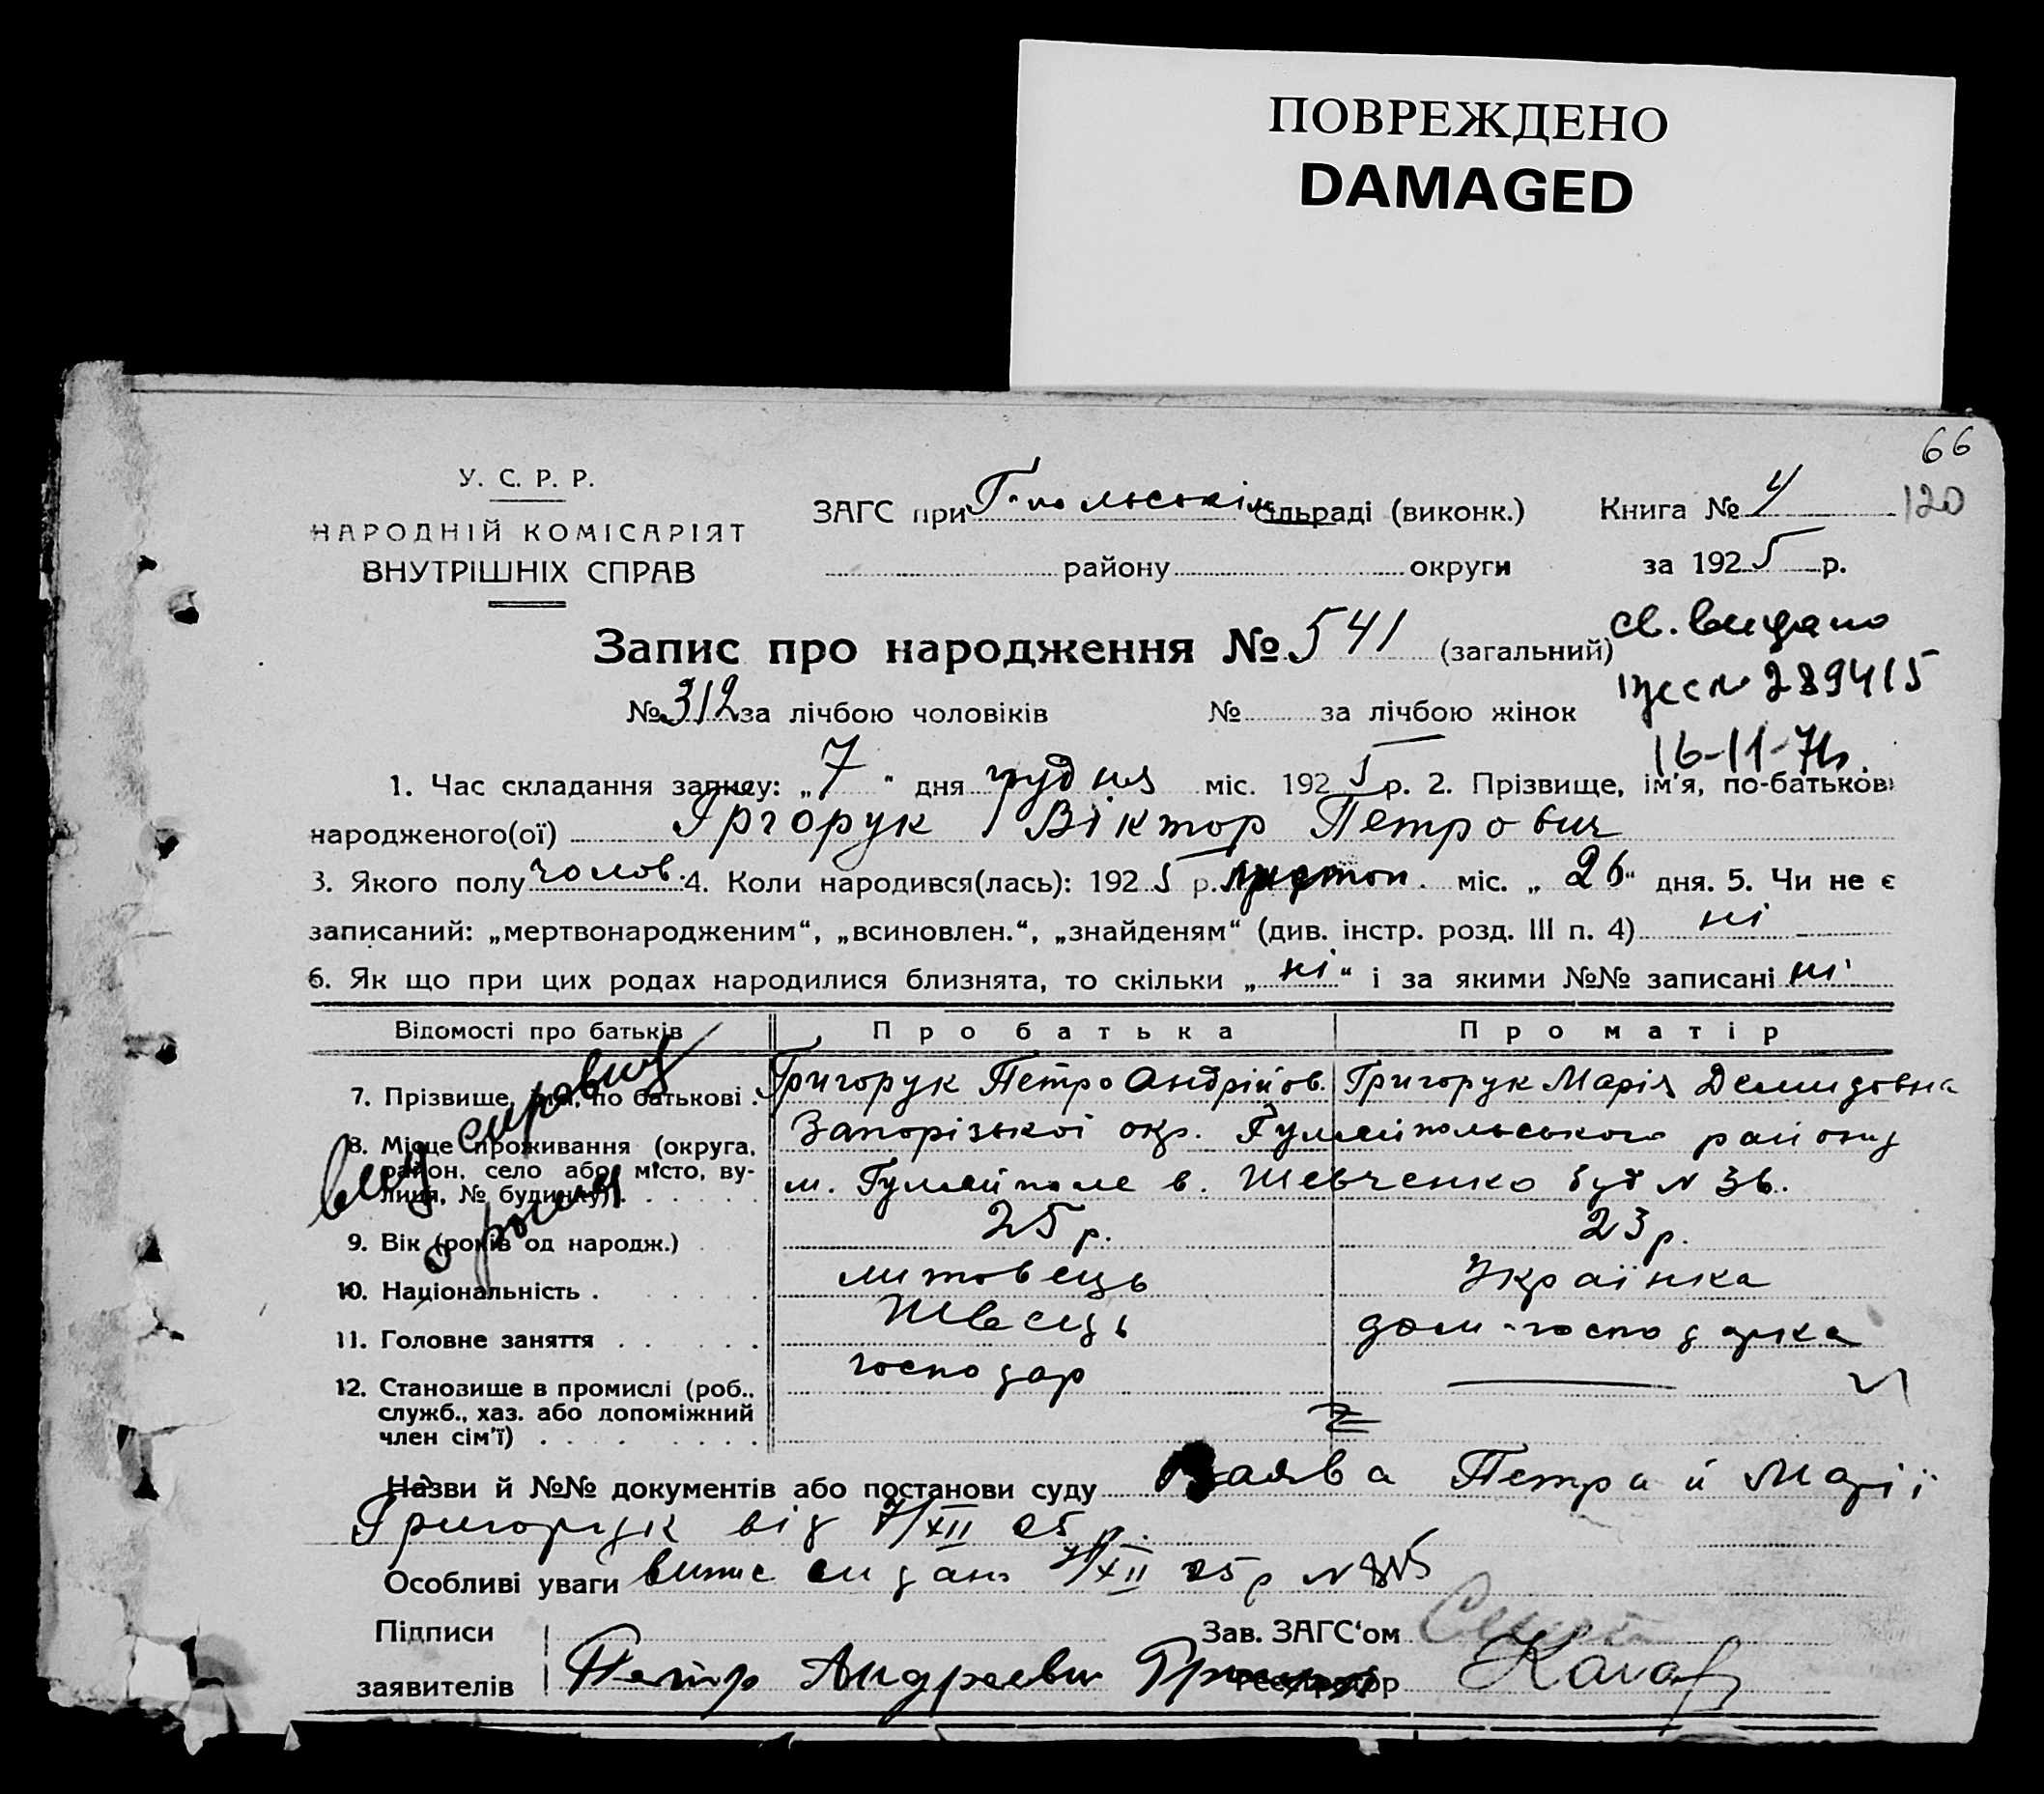 ПОВРЕЖДЕНО
DAMAGED
66
120
У. С. Р. Р.
НАРОДНІЙ КОМІСАРІЯТ
ВНУТРІШНІХ СПРАВ
ЗАГС при Г-польській сільраді (виконк.)
району округи
Книга № 4
за 1925 р.
Запис про народження № 541 (загальний)
св. видано
№ 289415
16-11-71г.
№ 312 за лічбою чоловіків № за лічбою жінок
1. Час складання запису: „7" дня грудня міс. 1925 р. 2. Прізвище, ім'я, по-батькові
народженого(ої) Грігорук Віктор Петрович
3. Якого полу чолов. 4. Коли народився(лась): 1925 р. листоп. міс. „26" дня. 5. Чи не є
записаний: „мертвонародженим“, „всиновлен.“, „знайденям“ (див. інстр. розд. III п. 4) ні
6. Як що при цих родах народилися близнята, то скільки „ні“ і за якими №№ записані ні
Відомості про батьків Про батька Про матір
7. Прізвище, ім'я, по батькові . Григорук Петро Андрійов. Григорук Марія Демидовна
8. Місце проживання (округа, Запорізької окр. Гуляйпольського району
район, село або місто, ву-
лиця, № будинку) . м. Гуляйполе в. Шевченко буд N 36.
9. Вік (років од народж.) 25 р. 23 р.
10. Національність . литовець Українка
11. Головне заняття . швець дом-господарка
12. Становище в промислі (роб., господар
служб., хаз. або допоміжний
член сім'ї) .
Назви й №№ документів або постанови суду Заява Петра й Марії
Григорук від 7/XII 25 р.
Особливі уваги випис видано 7/XII 25 р N
Підписи Зав. ЗАГС'ом
заявителів Петр Андреевич Реєстратор